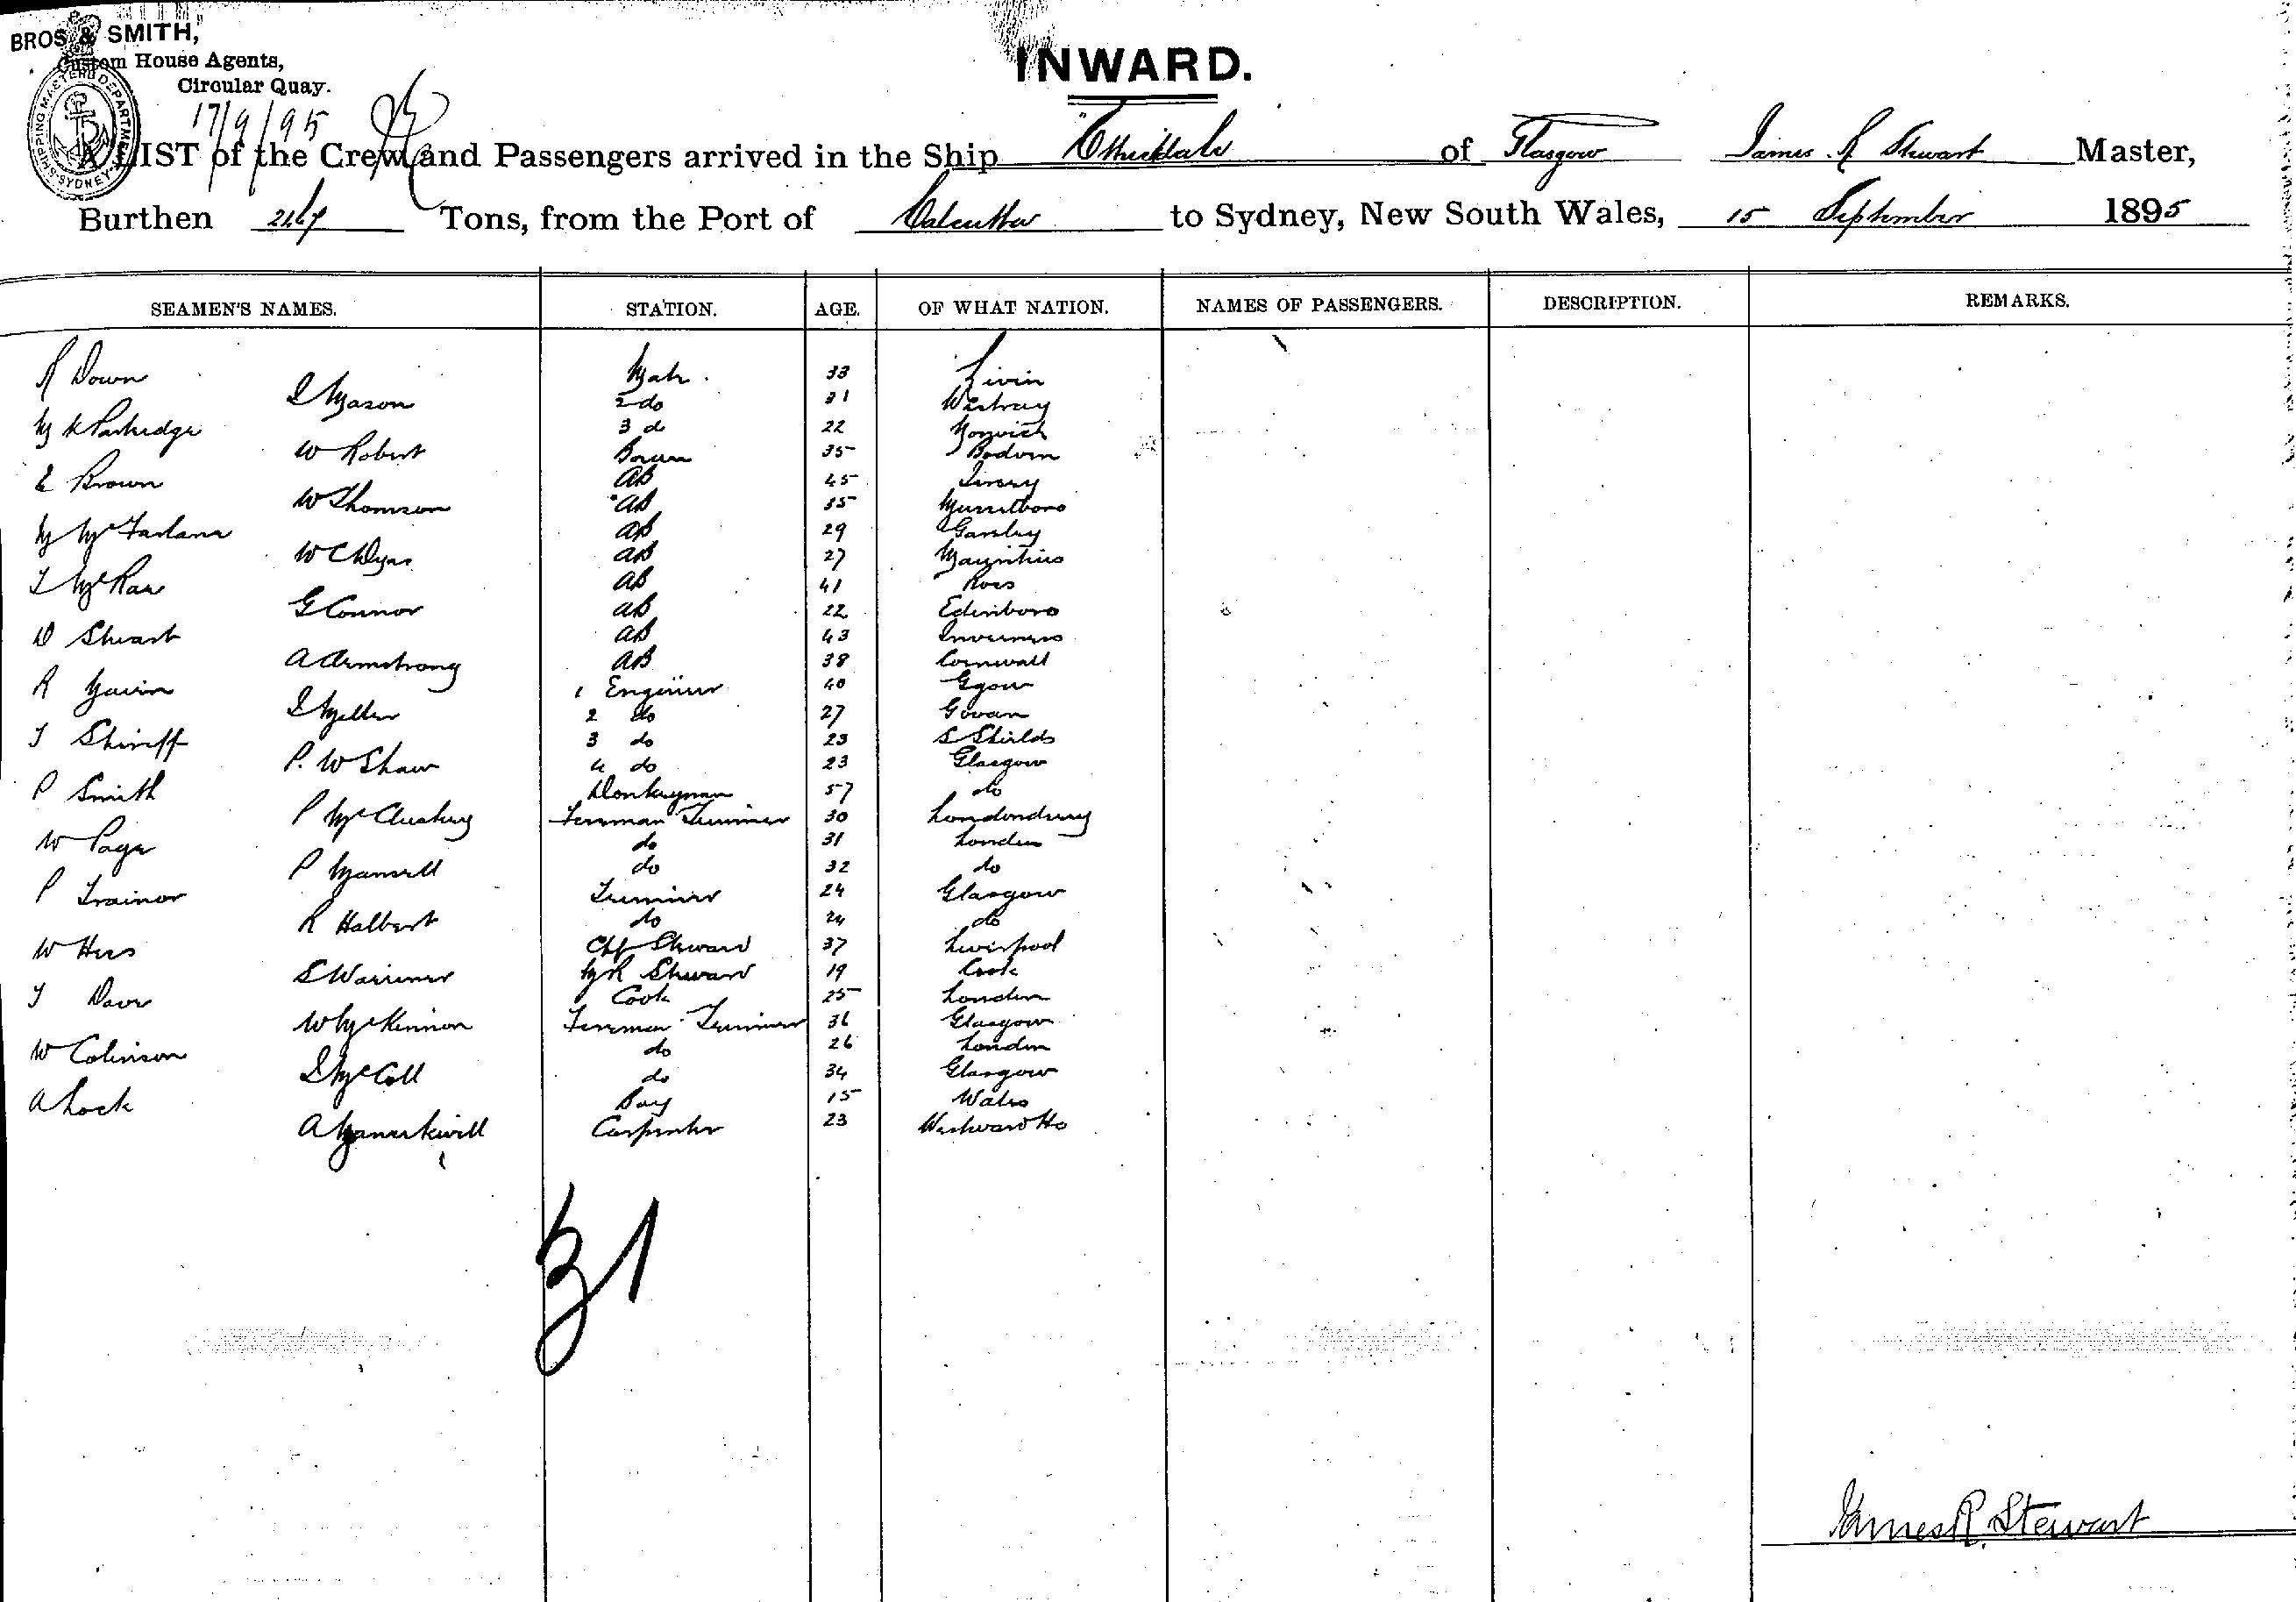 BROS & SMITH,
Custom House Agents,
Circular Quay.
17/9/95
SHIPPING MASTERS DEPARTMENT SYDNEY
INWARD.
A LIST of the Crew and Passengers arrived in the Ship Ettrickdale of Glasgow James R Stewart Master,
Burthen Tons, from the Port of Calcutta to Sydney, New South Wales, 15 September 1895
SEAMEN'S NAMES. STATION. AGE. OF WHAT NATION. NAMES OF PASSENGERS. DESCRIPTION. REMARKS.
R Down Mate 33
D Mason 2 do 31 Westray
M K Partridge 3 do 22 Norwich
W Robert Bosun 35 Bodmin
E Brown AB 45 Jersey
W Thomson AB 35
M McFarlane AB 29
W C Dyer AB 27 Mauritius
J McRae AB 41 Ross
G Connor AB 22 Edinboro
D Stewart AB 43 Inverness
A Armstrong AB 38 Cornwall
R Gavin 1 Engineer 40 Ggow
D Meller 2 do 27 Govan
J Shirreff 3 do 23 S Shields
P. W Shaw 4 do 23 Glasgow
P Smith Donkeyman 57 do
P McCluskey Fireman Trimmer 30 Londonderry
W Page do 31 London
P Mansell do 32 do
P Trainor Trimmer 24 Glasgow
R Halbert do 24 do
W Hers Chf Steward 37 Liverpool
S Warriner Steward 19 Cork
J Cook 25 London
W McKinnon Fireman Trimmer 36 Glasgow
W Colinson do 26 London
D McColl do 34 Glasgow
A Lock Boy 15 Wales
A Carpenter 23 Westward Ho
31
James R. Stewart